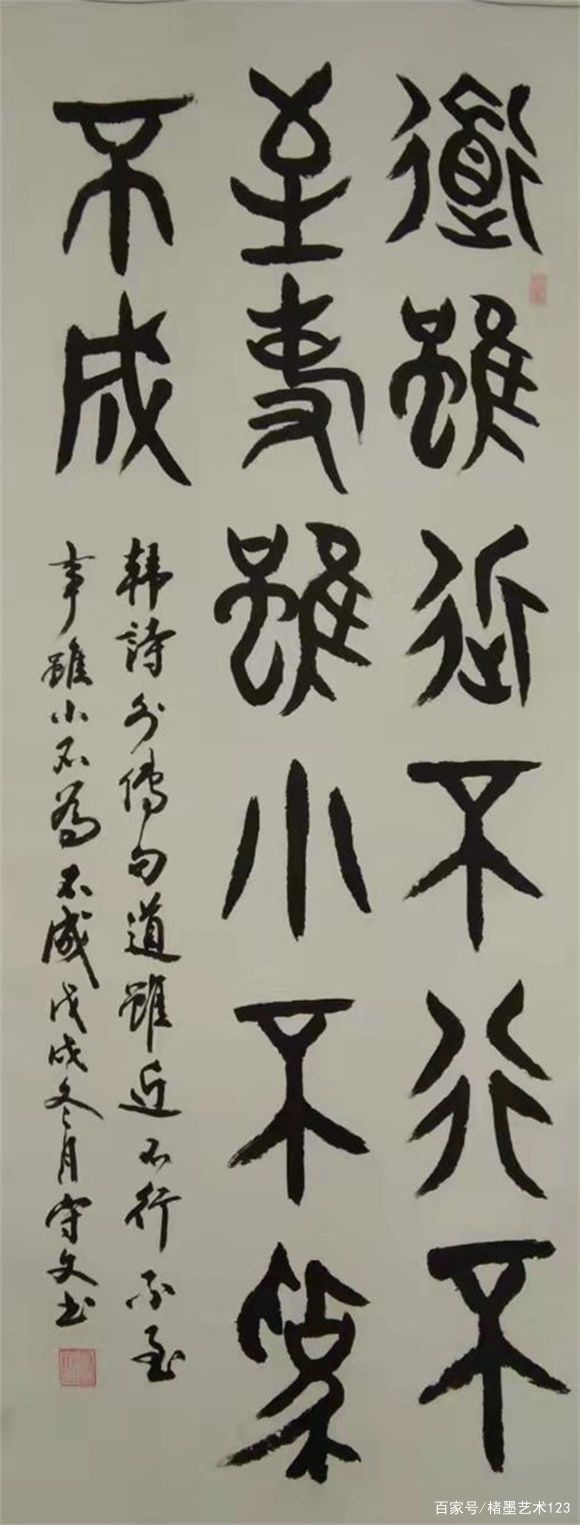 道雖近不行不
至事雖小不為
不成
韩詩外傳句道雖近不行不至
事雖小不為不成戊戌冬月守文书
百家号/楮墨艺术123